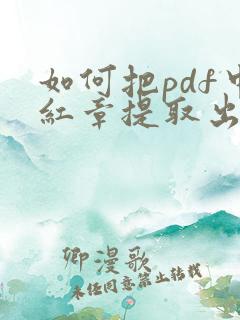 如何把pdf中
红章提取出
卿漫歌
未经同意禁止转载